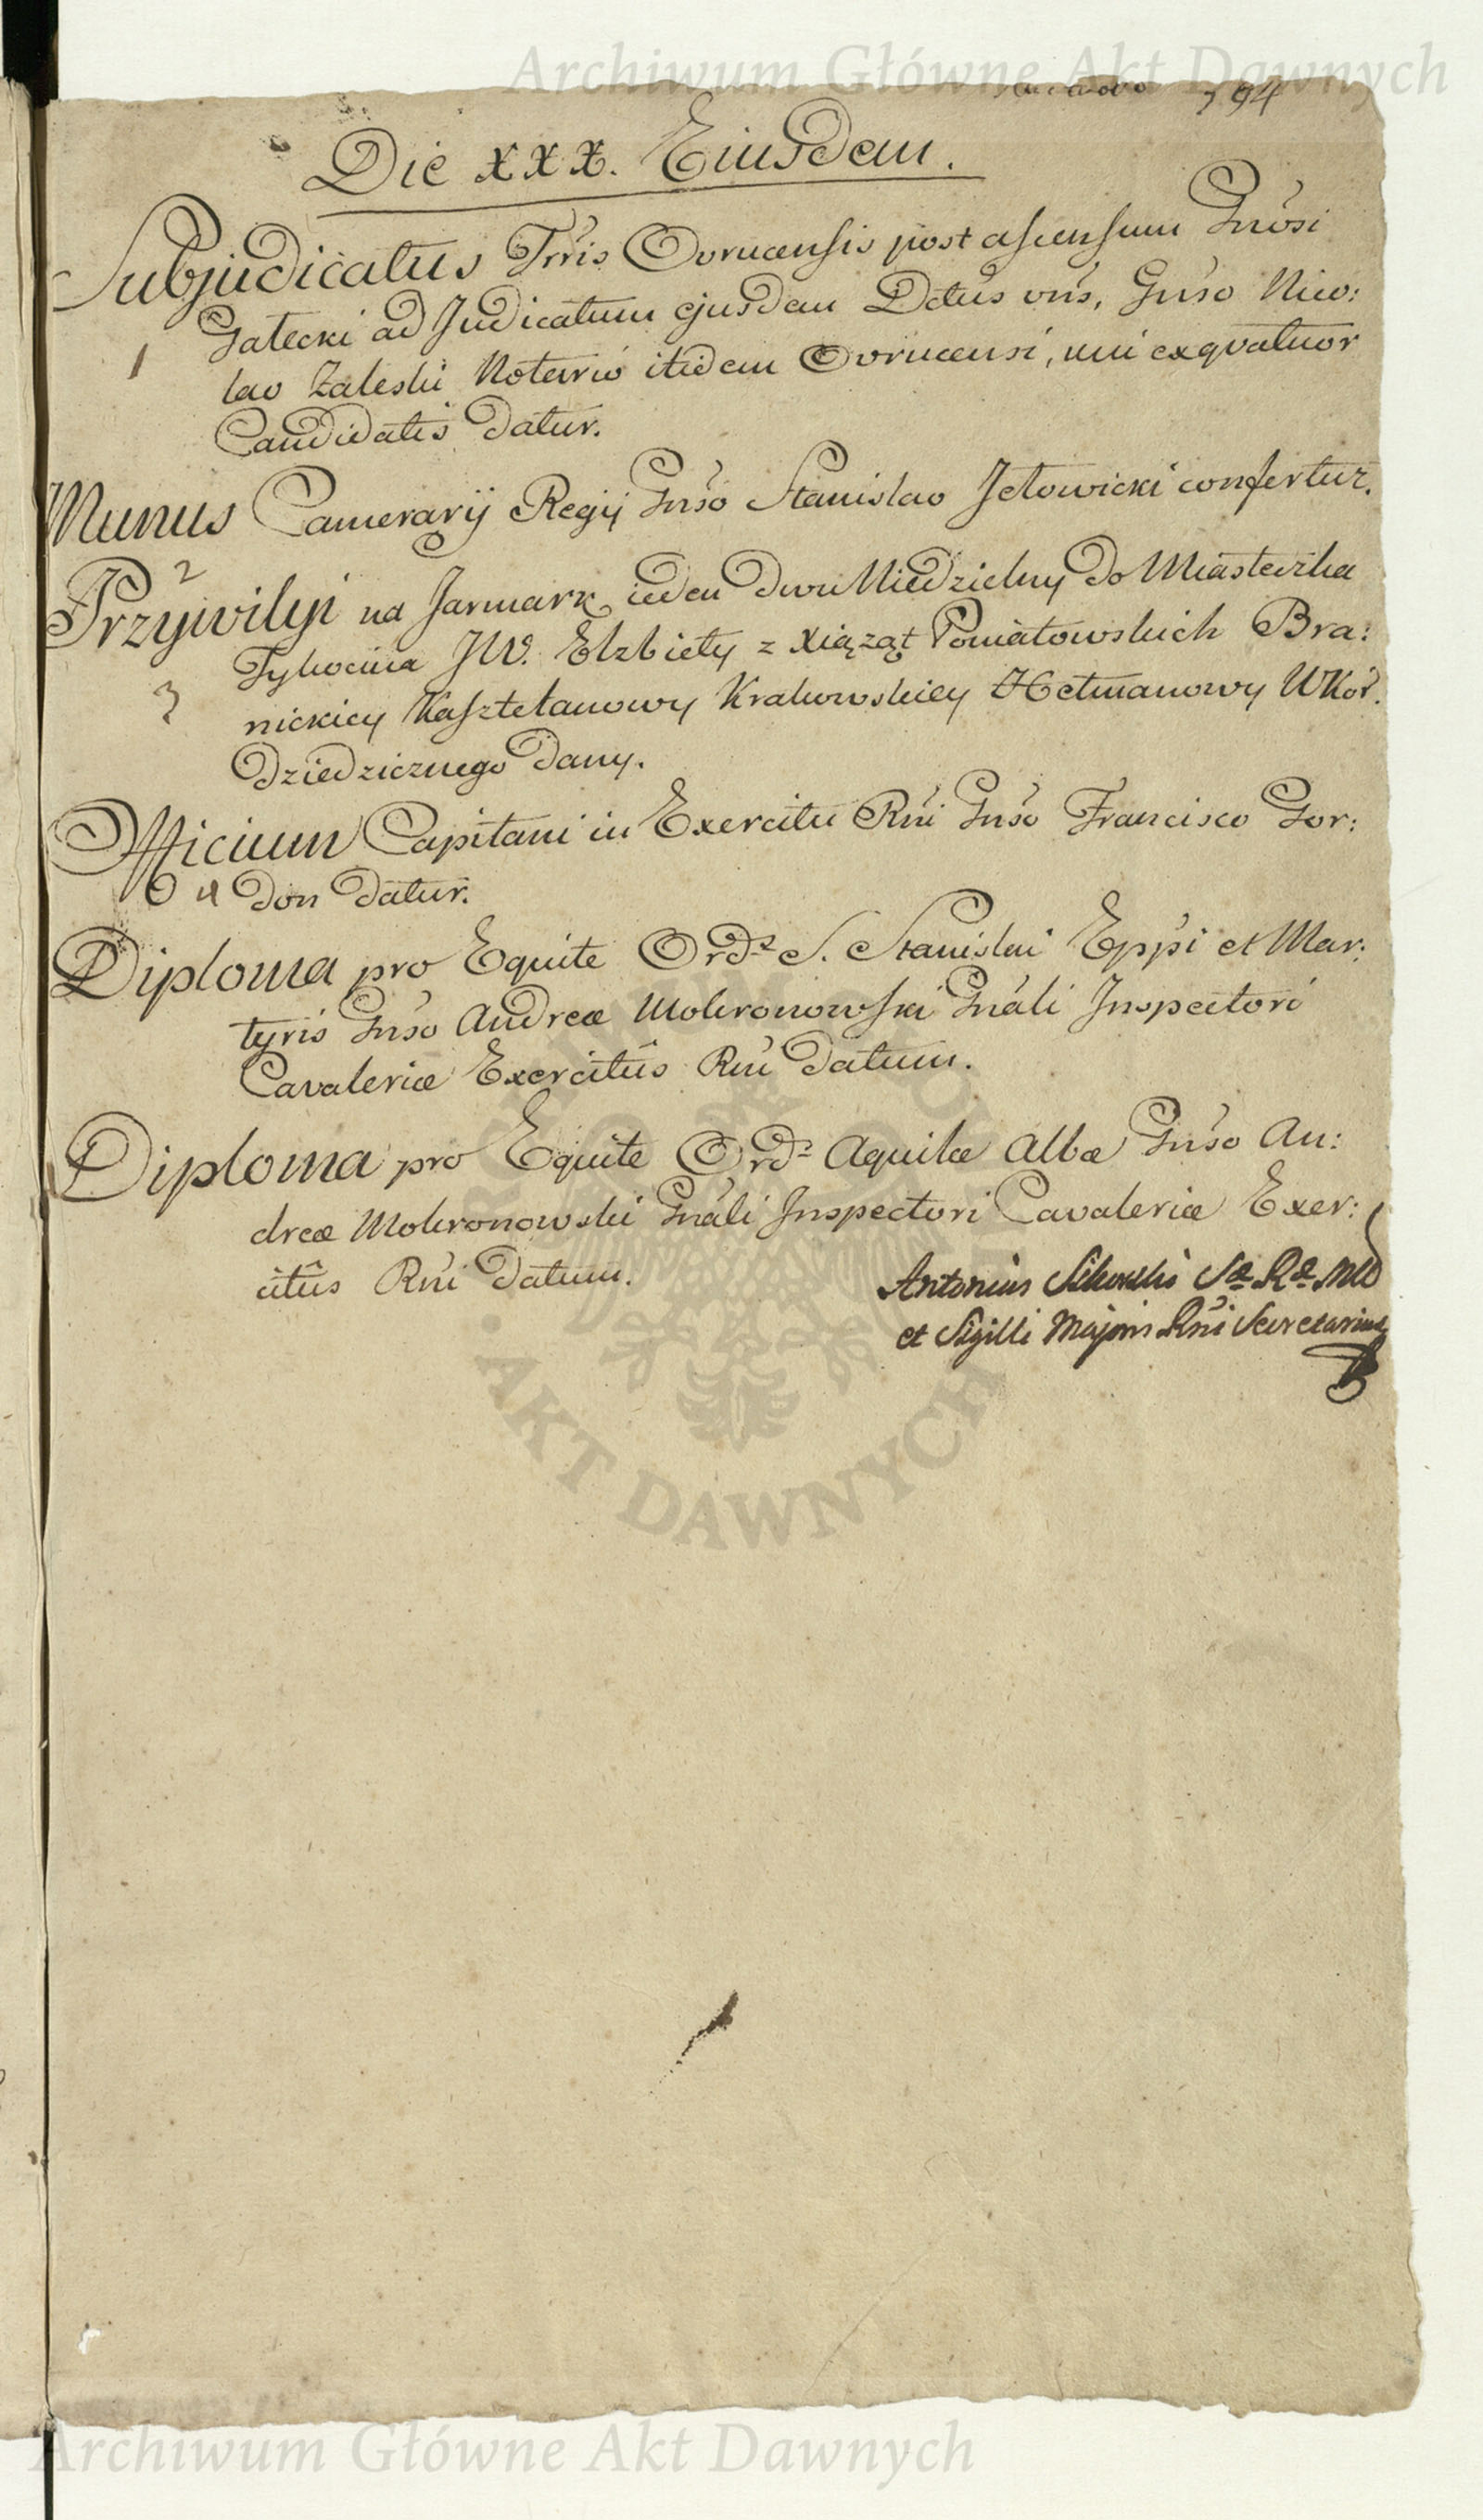 Archiwum Główne Akt Dawnych
94
Die XXX. Eiusdem.
Subjudicatus Trris Ovrucensis post ascensum Gnosi
Gałecki ad Judicatum ejusdem Dctus vrīs, Gnso Nico:
1
lao Zaleski Notario itidem Ovrucensi, uni exqvatuor
Candidatis datur.
Munus Camerarij Regij Gnso Stanislao Jełowicki confertur.
2
Przywilyi na Jarmark ieden dwu Niedzielny do Miasteczka
Tykocina JW. Elzbiety z Xiąząt Poniatowskich Bra:
3
nickiey Kasztelanowy Krakowskiey Hetmanowy WKor.
Dziedzicznego dany.
Officium Capitani in Exercitu Rni Gnso Francisco Gor:
4 don datur.
Diploma pro Equite Ord: S. Stanislai Eppi et Mar:
tyris Gnso Andreæ Mokronowski Gnali Inspectori
Cavaleriæ Exercitûs Rni datum.
Diploma pro Equite Ord: Aquilæ Albæ Gnso An:
dreæ Mokronowski Gnali Inspectori Cavaleriæ Exer:
citûs Rni datum.
Antonius Sikorski Sæ Ræ Mtis
et Sigilli Majoris Rni Secretarius
AKT DAWNYCH
Archiwum Główne Akt Dawnych